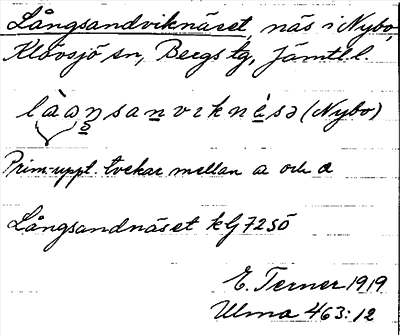 Långsandviknäset, näs i Nybo,
Klövsjö sn, Bergs tg, Jämtl.l.
(Nybo)
Prim.uppt. tvekar mellan a och ɑ
Långsandnäset kG 7250
E. Terner 1919
Ulma 463:12